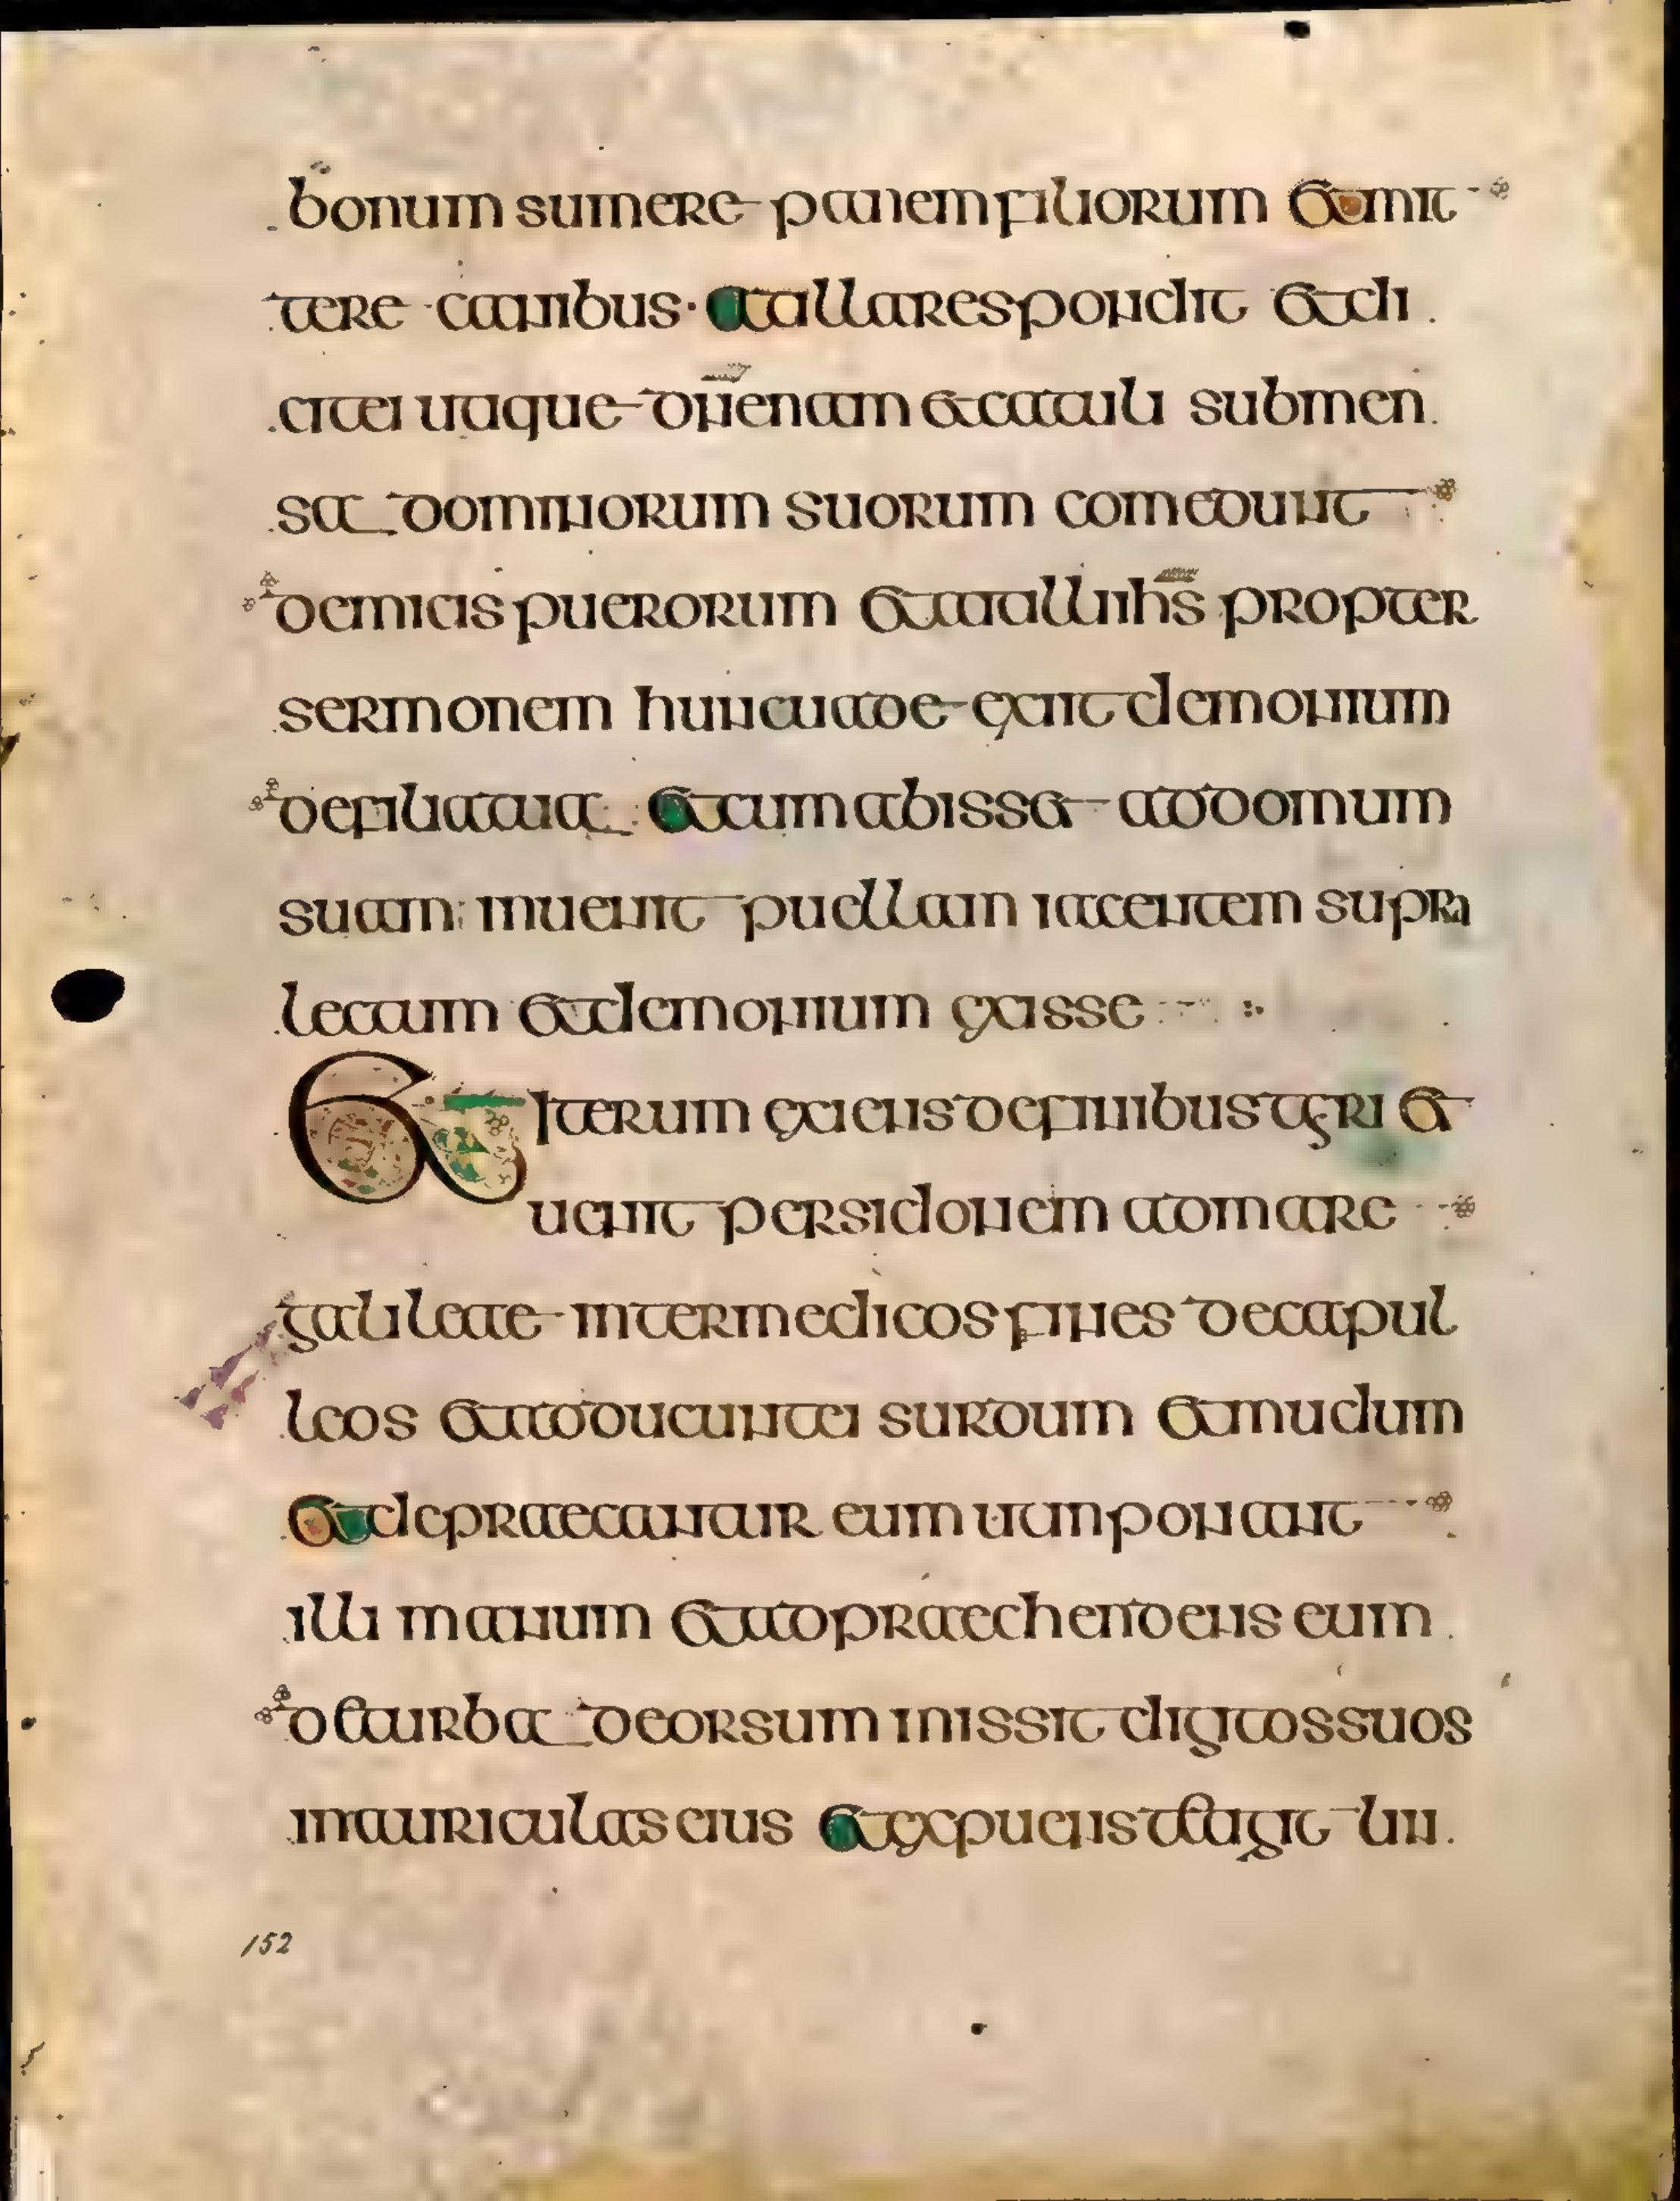 bonum sumere panem filiorum et mit
tere canibus · at illa respondit et di
cit ei utique dn̄e nam et catuli sub men
sa dominorum suorum comedunt
de micis puerorum et ait illi ih̄s propter
sermonem hunc uade exiit demonium
de filia tua et cum abisset ad domum
suam: inuenit puellam iacentem supra
lectum et demonium exisse
Et iterum exiens de finibus tyri et
uenit per sidonem ad mare
galileae inter medios fines decapul
leos et adducunt ei surdum et mudum
et depraecantur eum ut inponant
illi manum et adpraechendens eum
de turba deorsum inissit digitos suos
in auriculas eius et expuens tetigit lin
152